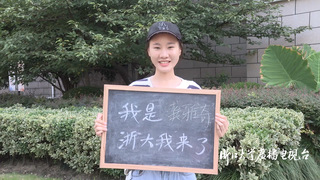 我是
浙大我来了
浙江大学广播电视台